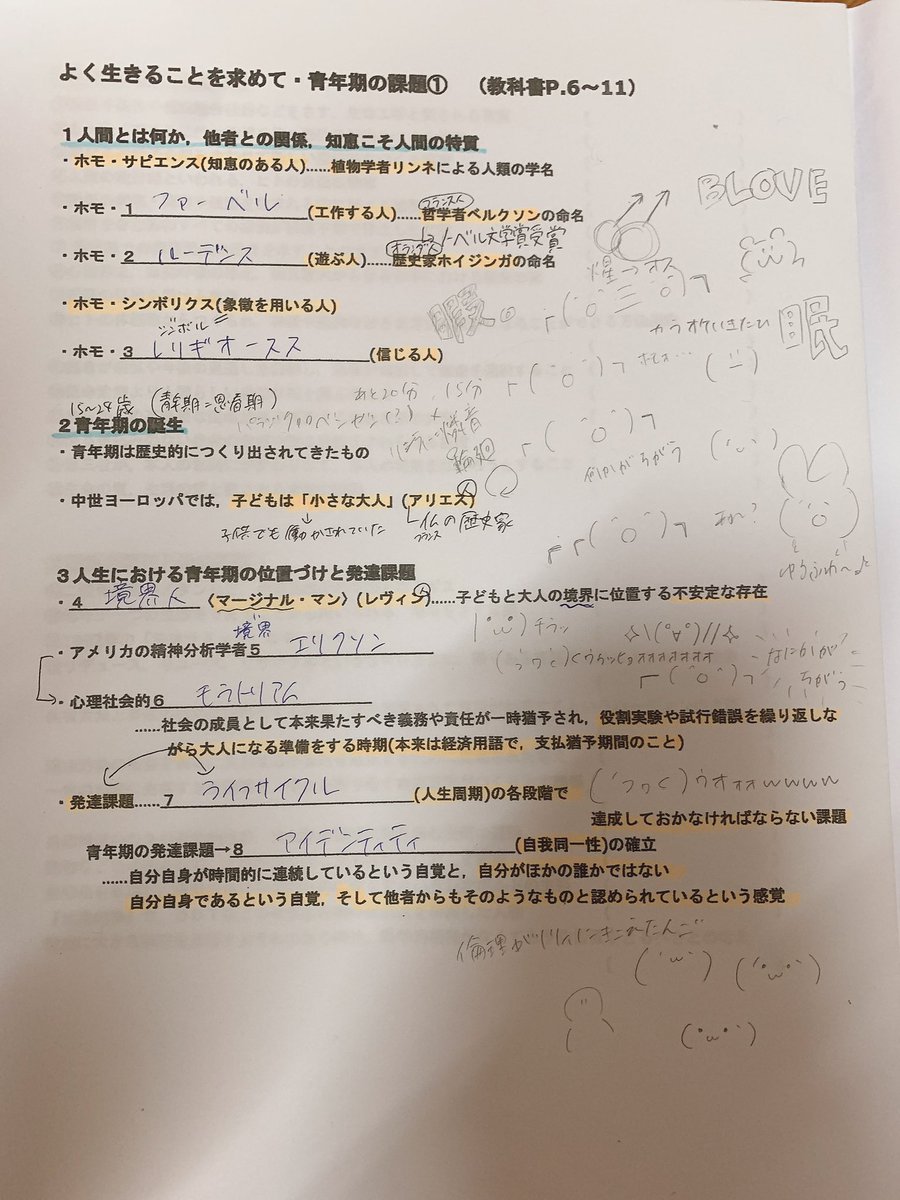 よく生きることを求めて・青年期の課題① （教科書P.6～11）
1人間とは何か，他者との関係，知恵こそ人間の特質
・ホモ・サピエンス(知恵のある人)……植物学者リンネによる人類の学名
BLOVE
フランス人
・ホモ・1 ファーベル (工作する人)……哲学者ベルクソンの命名
ノーベル文学賞受賞
オランダ人
・ホモ・2 ルーデンス (遊ぶ人)……歴史家ホイジンガの命名
・ホモ・シンボリクス(象徴を用いる人)
暇。
「(ﾟ三ﾟ)7
カラオケいきたい
眠
シンボル
・ホモ・3 レリギオースス (信じる人)
15～24歳 (青年期=思春期)
あと20分、15分
2青年期の誕生
パラジクロロベンゼン(？)
・青年期は歴史的につくり出されてきたもの
輪廻
何かがちがう
・中世ヨーロッパでは，子どもは「小さな大人」(アリエス)
人
子供でも働かされていた
仏の歴史家
フランス
あれ？
ゆるふわ～♪
3人生における青年期の位置づけと発達課題
・4 境界人 〈マージナル・マン〉(レヴィン)……子どもと大人の境界に位置する不安定な存在
境界
チラッ
・アメリカの精神分析学者5 エリクソン
なにかが？
ちがう
・心理社会的6 モラトリアム
……社会の成員として本来果たすべき義務や責任が一時猶予され，役割実験や試行錯誤を繰り返しな
がら大人になる準備をする時期(本来は経済用語で，支払猶予期間のこと)
・発達課題……7 ライフサイクル (人生周期)の各段階で
ウオォォwwww
達成しておかなければならない課題
青年期の発達課題→8 アイデンティティ (自我同一性)の確立
……自分自身が時間的に連続しているという自覚と，自分がほかの誰かではない
自分自身であるという自覚，そして他者からもそのようなものと認められているという感覚
(´ω`)
(・ω・)
(・ω・)